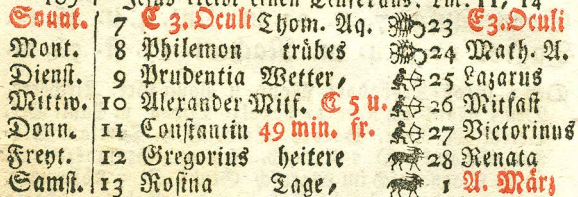 Jesus treibt einen Teufel aus. Luc. 11, 14
Sount. 7 C 3. Oculi Thom. Aq. 23 E 3. Oculi
Mont. 8 Philemon trübes 24 Math. A.
Dienst. 9 Prudentia Wetter, 25 Lazarus
Mittw. 10 Alexander Mitf. C 5 u. 26 Mitfast
Donn. 11 Constantin 49 min. fr. 27 Victorinus
Freyt. 12 Gregorius heitere 28 Renata
Samst. 13 Rosina Tage, 1 A. März